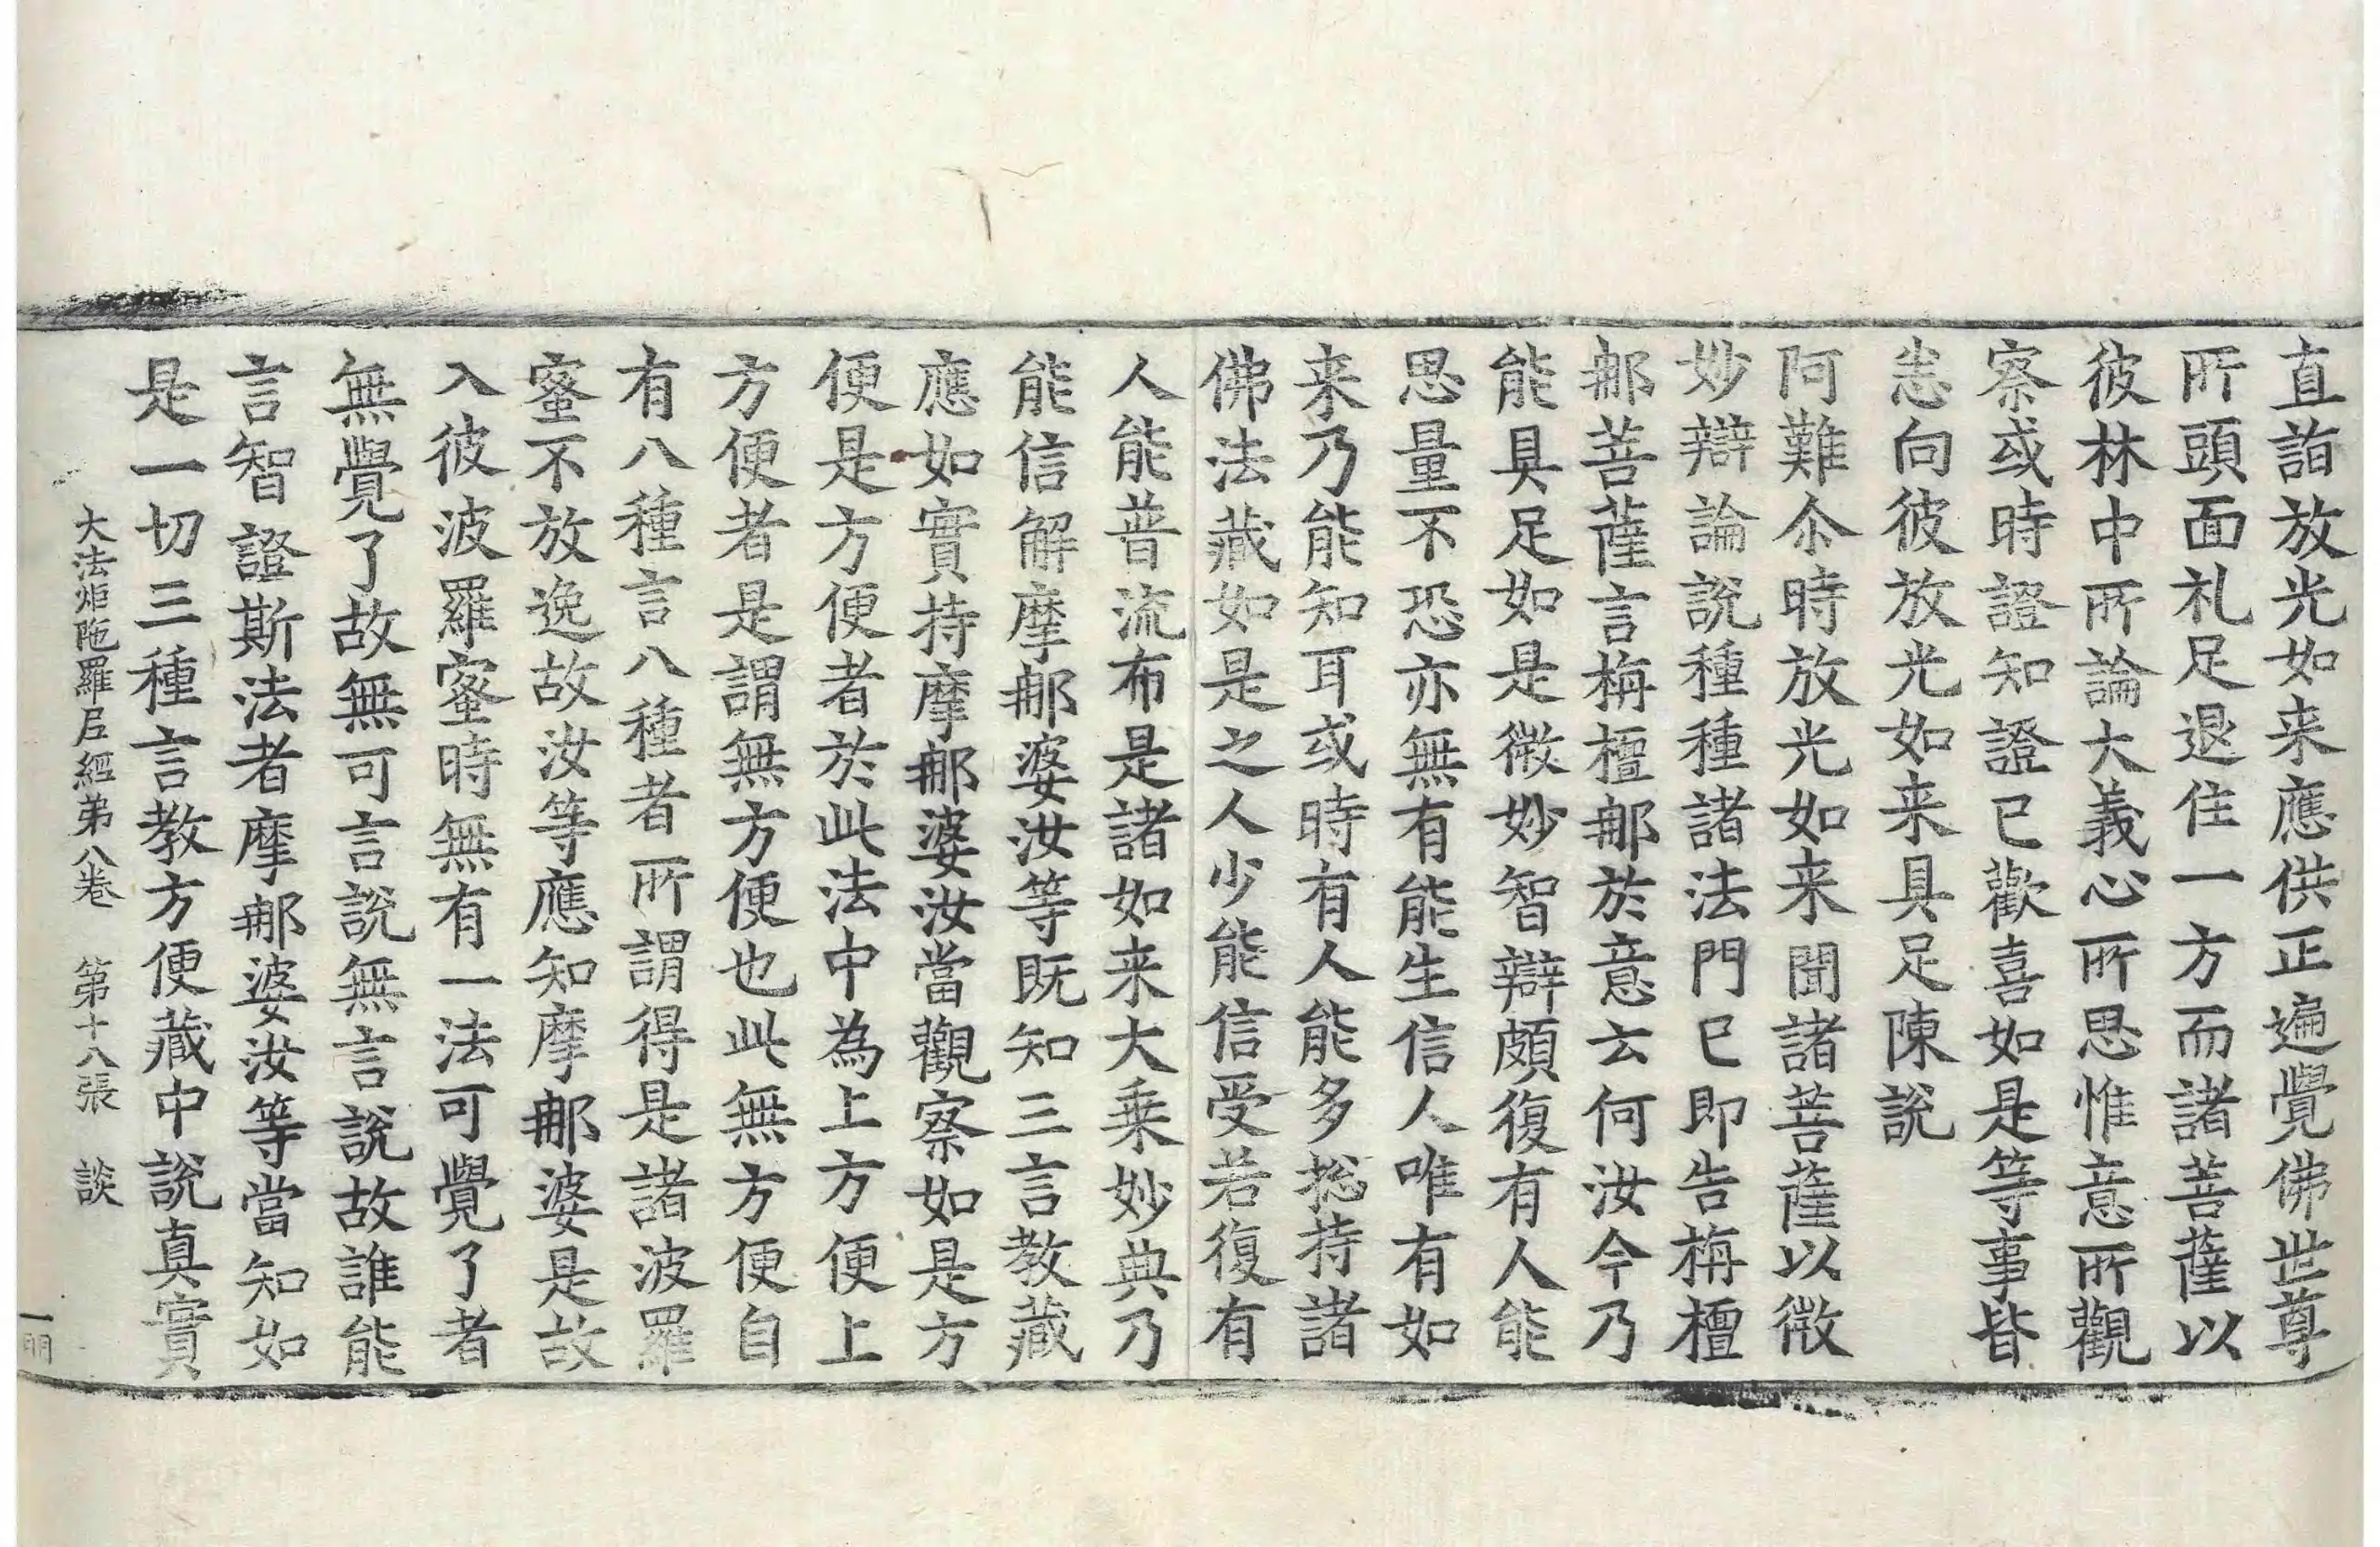 直詣放光如来應供正遍覺佛世尊
所頭面礼足退住一方而諸菩薩以
彼林中所論大義心所思惟意所觀
察或時證知證已歡喜如是等事皆
恚向彼放光如来具足陳說
阿難尒時放光如来聞諸菩薩以微
妙辯論說種種諸法門已即告栴檀
郍菩薩言栴檀郍於意云何汝今乃
能具足如是微妙智辯頗復有人能
思量不恐亦無有能生信人唯有如
来乃能知耳或時有人能多捴持諸
佛法藏如是之人少能信受若復有
人能普流布是諸如来大乗妙典乃
能信解摩郍婆汝等既知三言教藏
應如實持摩郍婆汝當觀察如是方
便是方便者於此法中為上方便上
方便者是謂無方便也此無方便自
有八種言八種者所謂得是諸波羅
蜜不放逸故汝等應知摩郍婆是故
入彼波羅蜜時無有一法可覺了者
無覺了故無可言說無言說故誰能
言智證斯法者摩郍婆汝等當知如
是一切三種言教方便藏中說真實
大法炬陁羅尼經苐八卷 第十八張 談